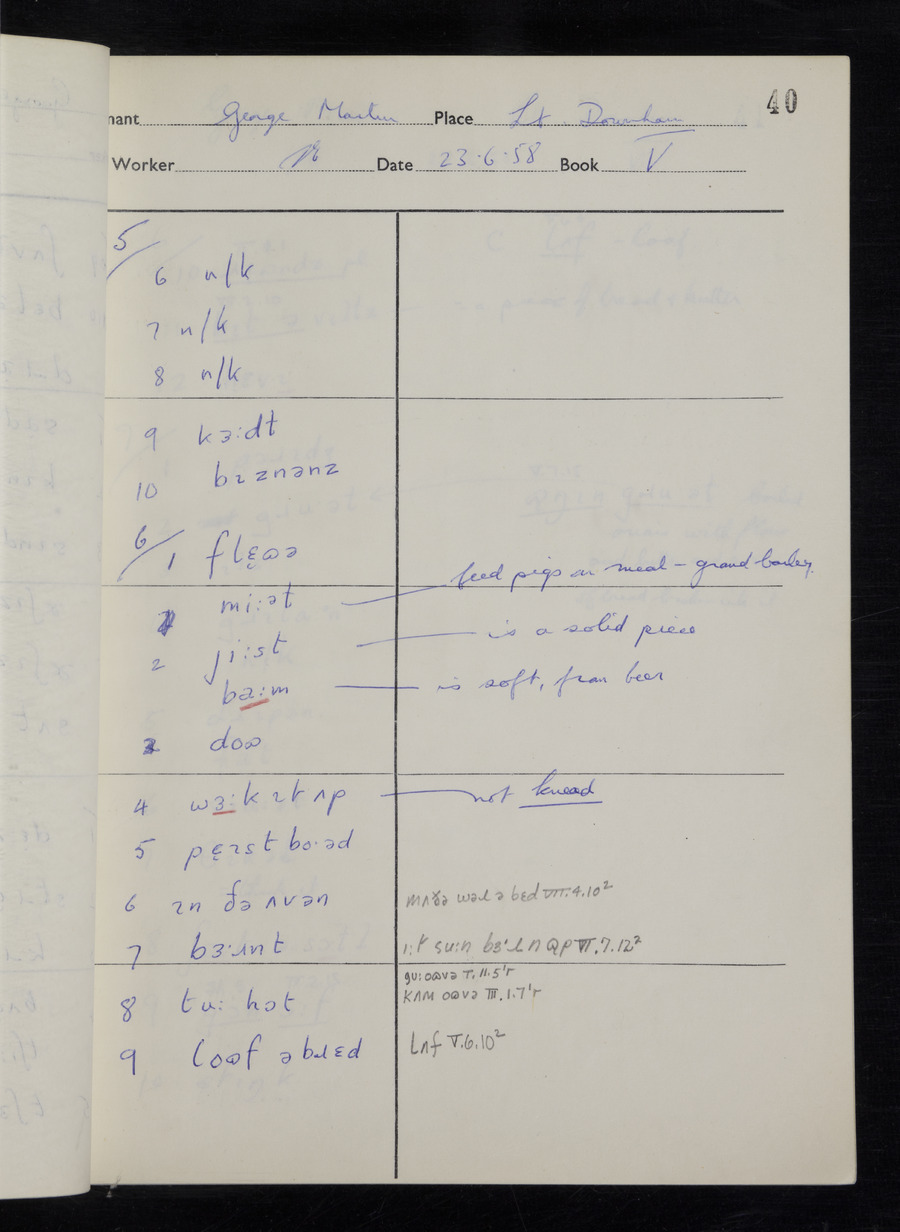 40
nant George Martin Place Lt. Downham
Worker Date 23.6.58 Book V
5/
6 n/k
7 n/k
8 n/k
9 kɜːdt
10 bɪznənz
6/ 1 flɛʊə
miːət — feed pigs on meal – ground barley.
2 jiːst — is a solid piece
bəːm — is soft, from beer
3 doʊ
4 wɜːk ɪt ʌp — not knead
5 pɛɪst boːəd
6 ɪn ðə ʌvən mʌðə wəɹ ə bɛd VII.4.10²
7 bɜːɹnt
guː oʊvə
8 tuː hɒt kʌm oʊvə III.1.7'r
9 loʊf ə bɹɛd lʌf V.6.10²